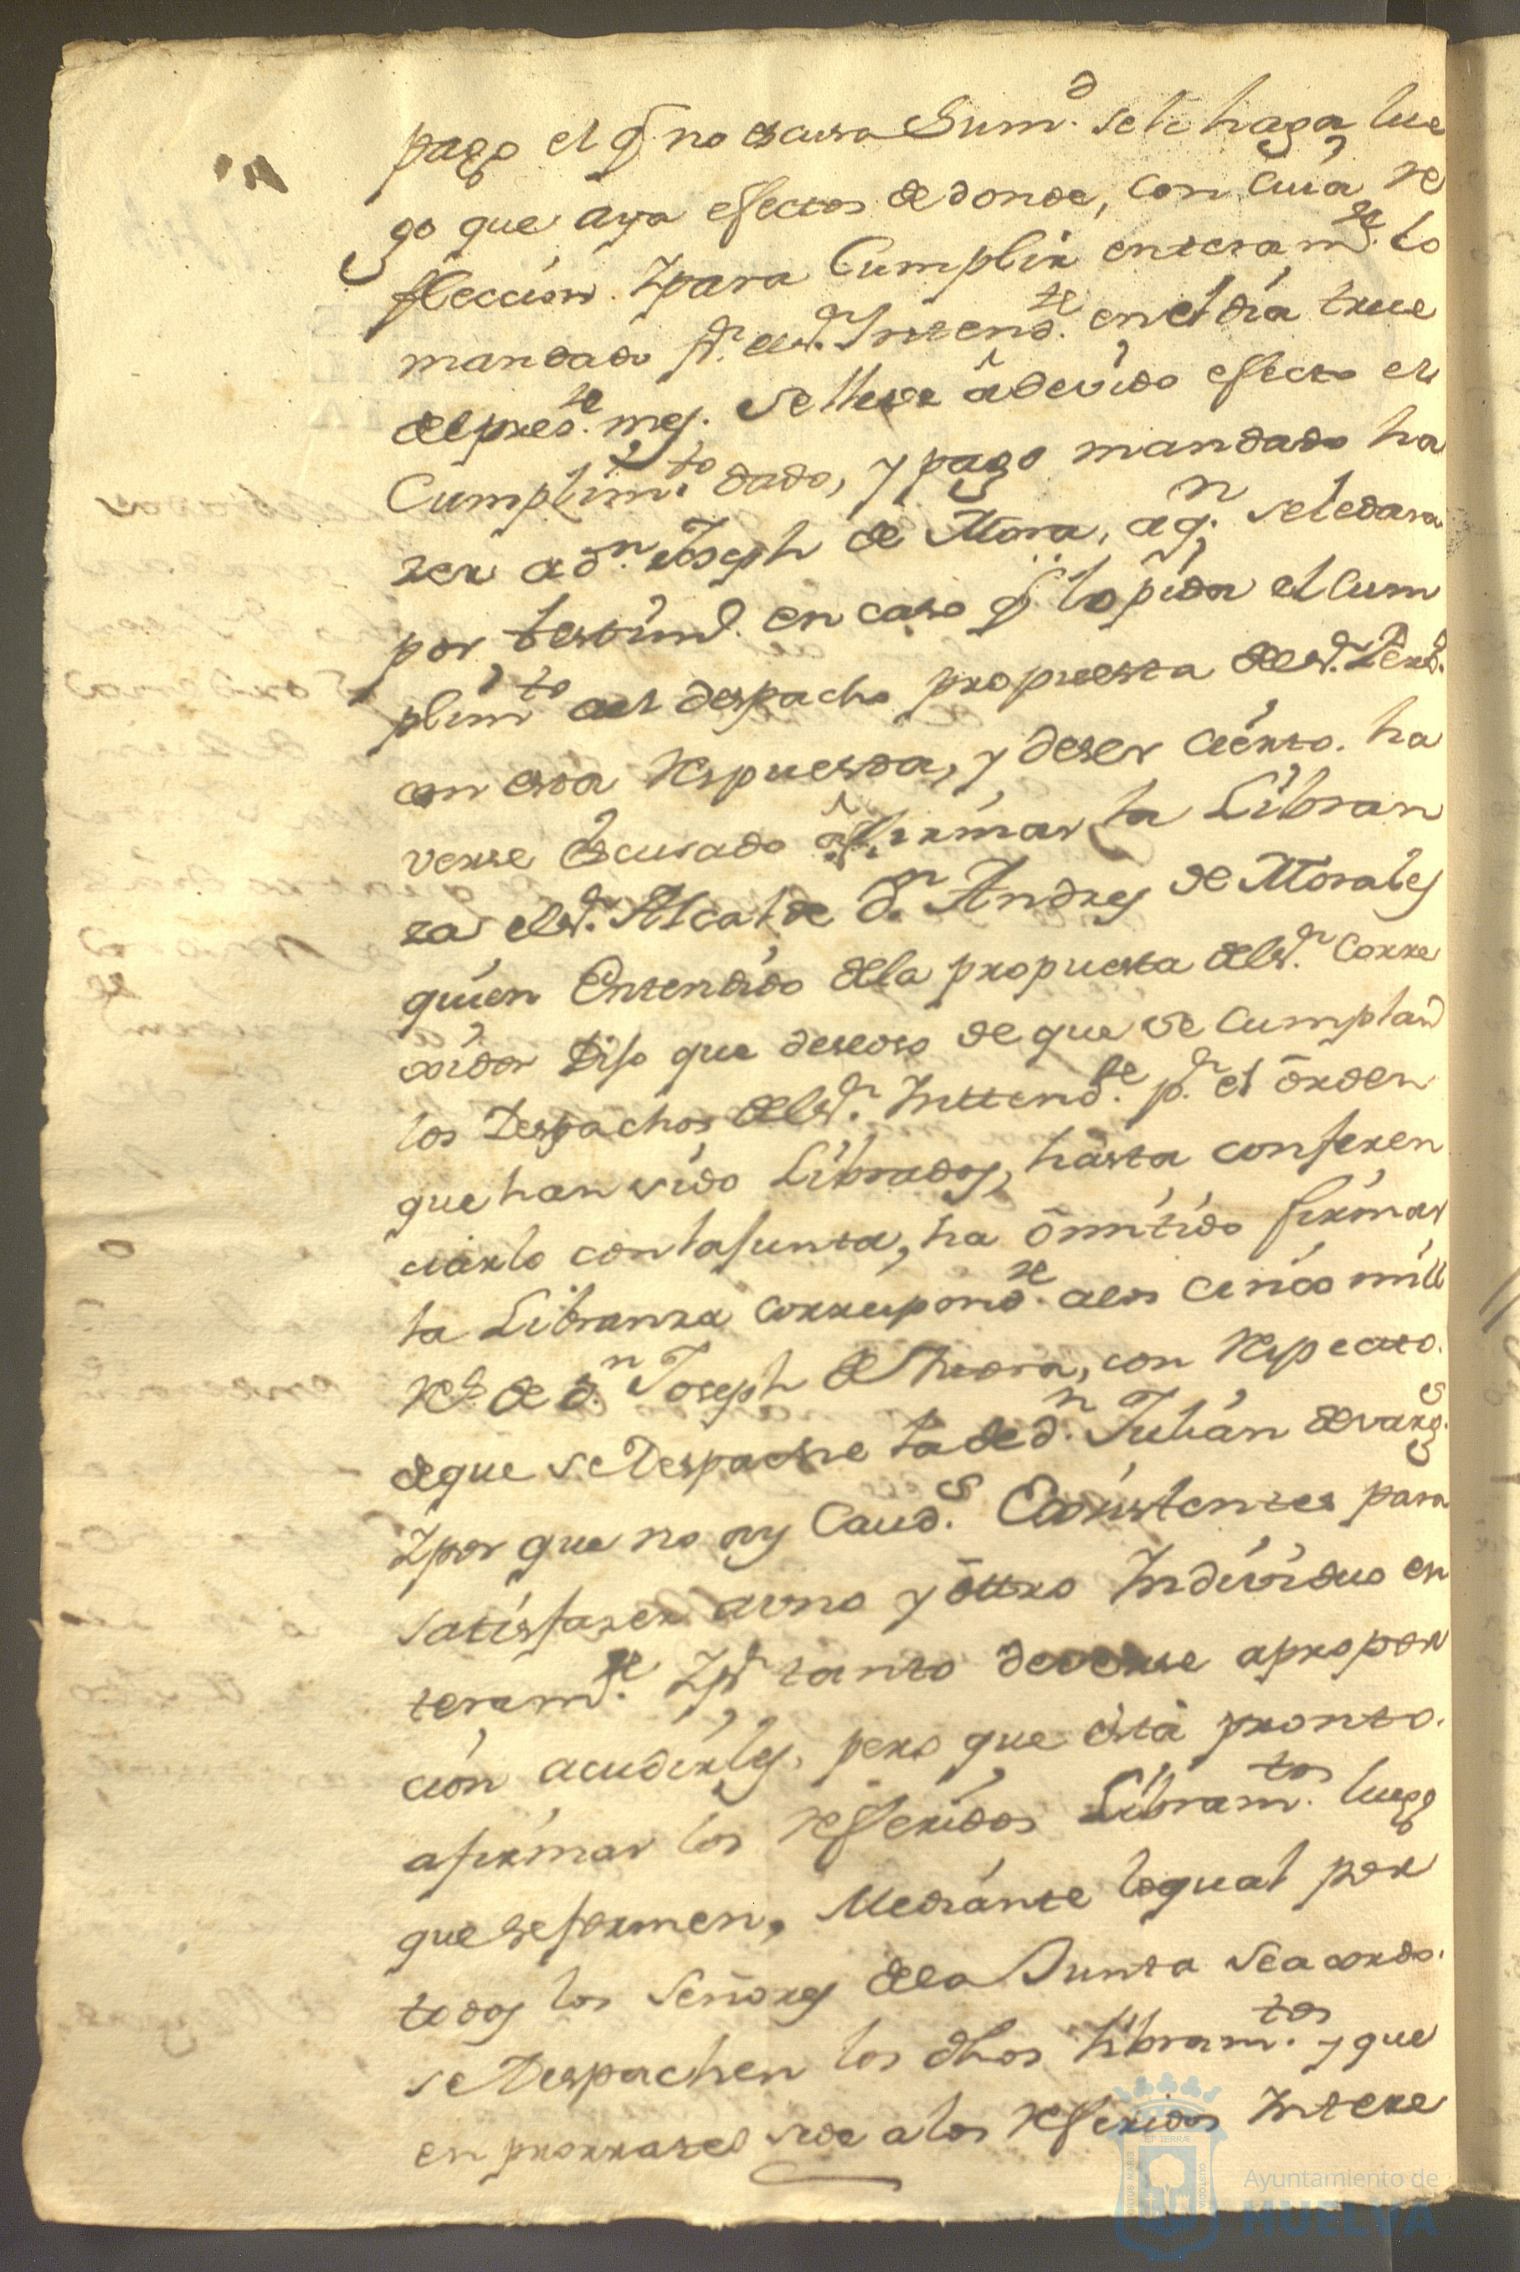 pago el q̃ no escusa Sum.d se le haga lue
go que aya efectos de donde, con cuia re
fleccion. Ypara Cumplir enteram.te lo
mandado p.r el s.r Intend.te en el dia trece
del pres.te mes. Se lleve â devido efecto el
Cumplim.to dado, y pago mandado ha
zer a d.n Joseph de Mora, a q.n se le dara
por testim.o en caso q̃ lo pida el Cum
plim.to del despacho propuesta del s.r
con esta respuesta, y de ser cierto. ha
verse Escusado â firmar la Libran
za el s.r Alcalde d.n Andres de Morales
quien Entendido de la propuesta del s.r Corre
xidor Dijo que deseoso de que se cumplan
los Despachos del s.r Inttend.te p.r el ôrden
que han sido Librados, hasta conferen
ciarlo con la junta, ha ômitido firmar
la Libranza correspond.te a los cinco mill
r.s de d.n Joseph de Mora, con respecto.
de que se Despache la de d.n Julian de varg.s
Ypor que no ay Caud.s Existentes para
satisfazer a uno y ôttro Individuo en
teram.te Yp.r tanto deverse a propor
cion acudirles, pero que està pronto.
a firmar los refferidos Libram.tos luego
que se formen, Mediante lo qual por
todos los Señores de la Junta se acordo.
se Despachen los dhos libram.tos y que
en prorrateo se de a los refferidos Intere
Ayuntamiento de
HUELVA